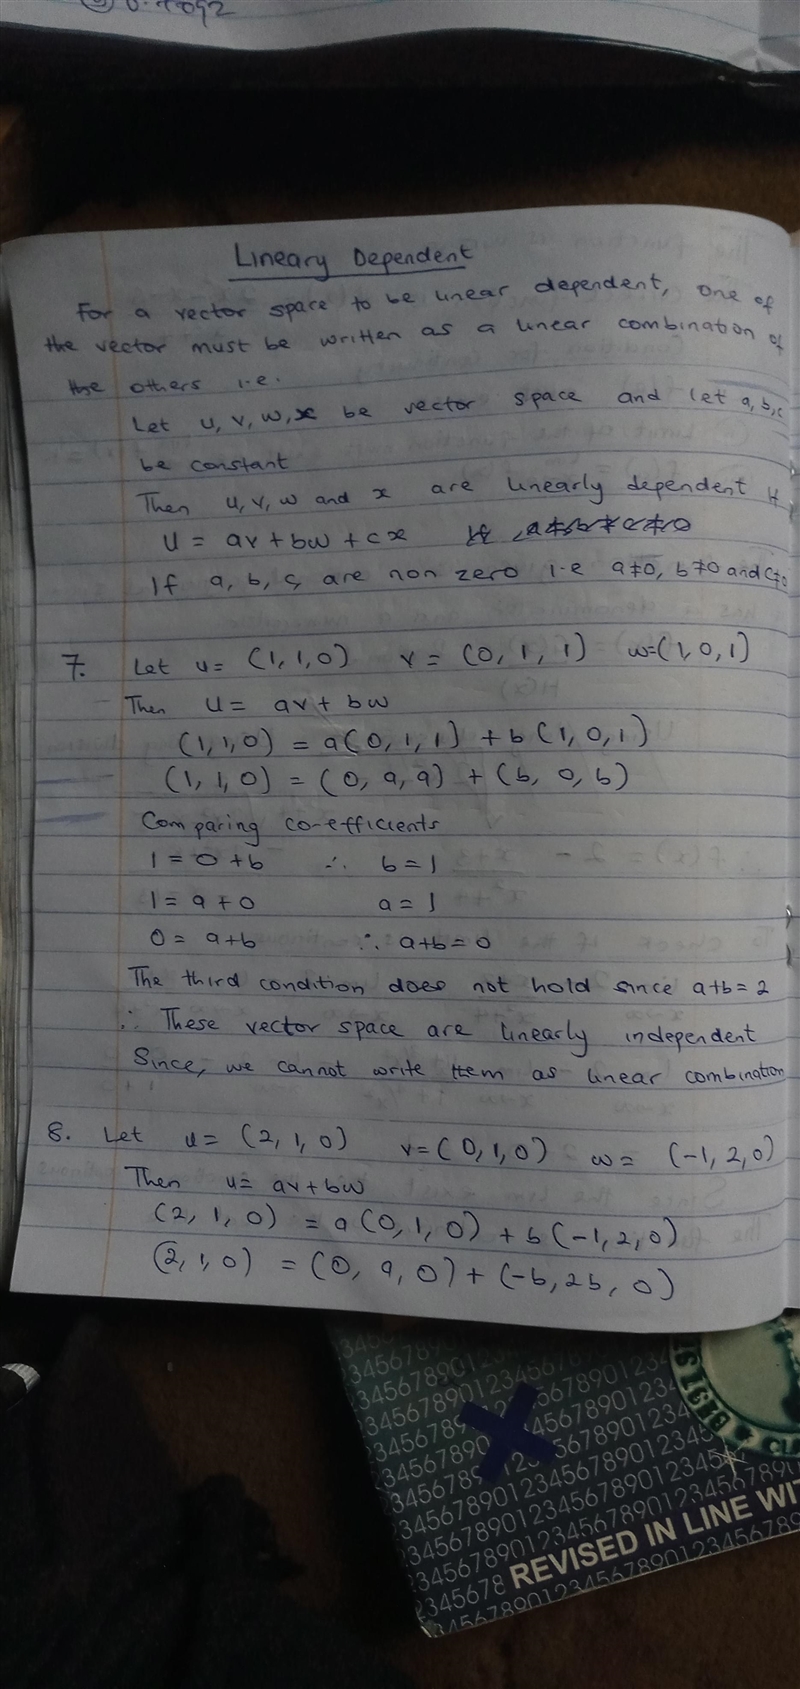 Lineary Dependent
For a vector space to be linear dependent, one of
the vector must be written as a linear combination of
the others i.e.
Let u, v, w, x be vector space and let a, b, c
be constant
Then u, v, w and x are linearly dependent if
u = av + bw + cx
If a, b, c, are non zero i.e a≠0, b≠0 and c≠0
7. Let u = (1, 1, 0) v = (0, 1, 1) w = (1, 0, 1)
Then u = av + bw
(1, 1, 0) = a(0, 1, 1) + b(1, 0, 1)
(1, 1, 0) = (0, a, a) + (b, 0, b)
Comparing co-efficients
1 = 0 + b ∴ b = 1
1 = a + 0 a = 1
0 = a + b ∴ a + b = 0
The third condition does not hold since a + b = 2
∴ These vector space are linearly independent
Since, we cannot write them as linear combination
8. Let u = (2, 1, 0) v = (0, 1, 0) w = (-1, 2, 0)
Then u = av + bw
(2, 1, 0) = a(0, 1, 0) + b(-1, 2, 0)
(2, 1, 0) = (0, a, 0) + (-b, 2b, 0)
REVISED IN LINE WIT